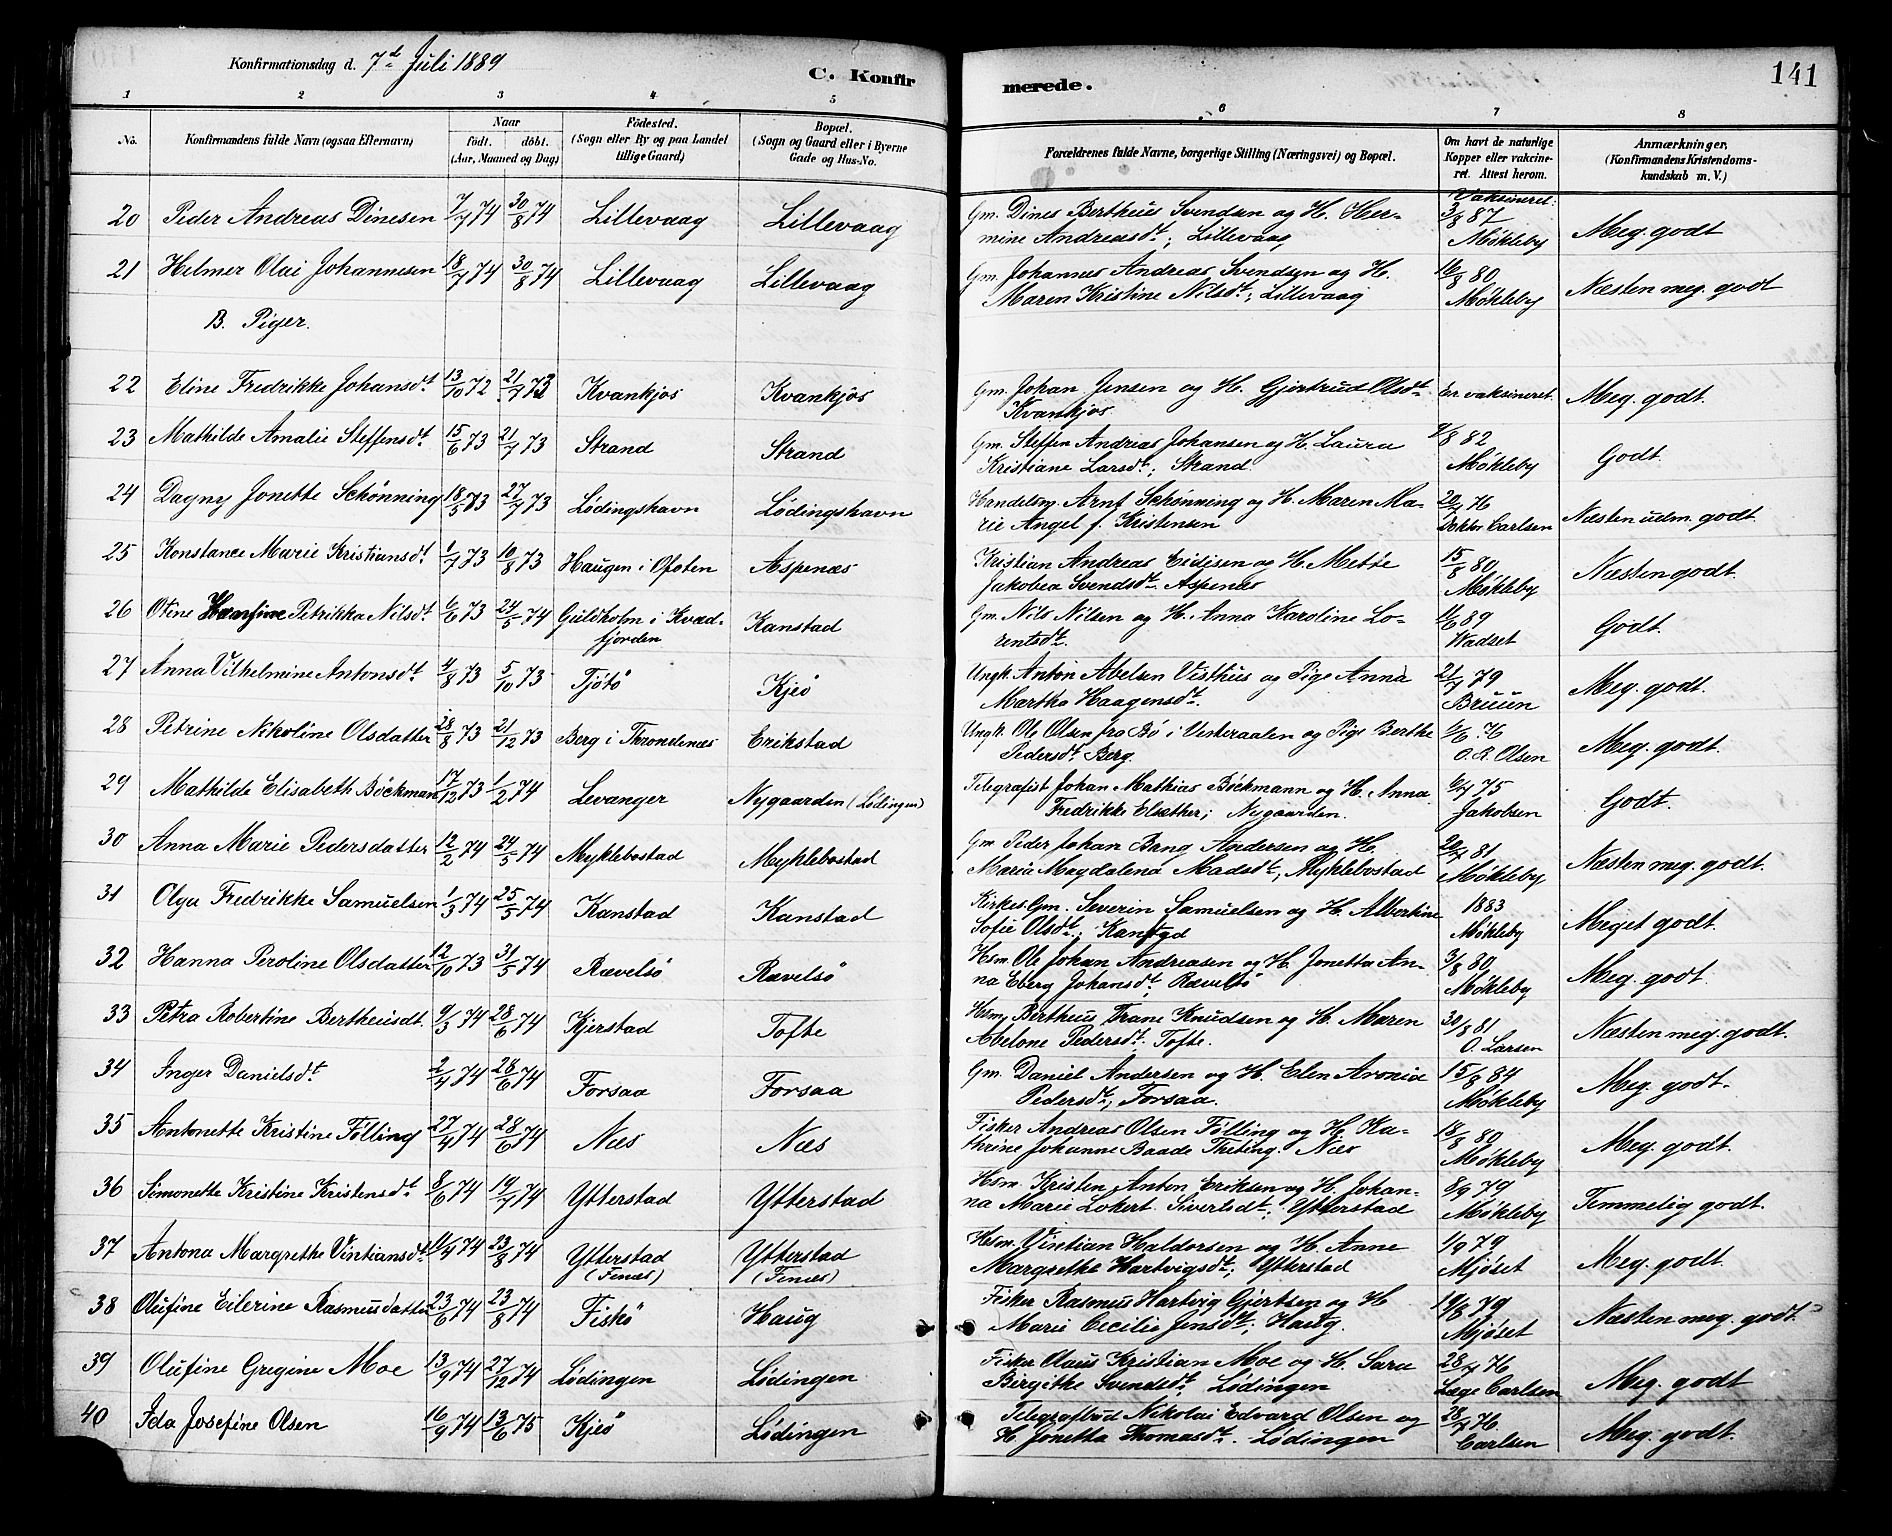 Konfirmationsdag d. 7d Juli 1889
C. Konfirmerede.
141
1 2 3 4 5 6 7 8
No.
Konfirmandens fulde Navn (ogsaa Efternavn)
Naar
født. døbt.
(Aar, Maaned og Dag)
Fødested.
(Sogn eller By og paa Landet
tillige Gaard)
Bopæl.
(Sogn og Gaard eller i Byerne
Gade og Hus-No.
Forældrenes fulde Navne, borgerlige Stilling (Næringsvei) og Bopæl.
Om havt de naturlige
Kopper eller vakcine-
ret. Attest herom.
Anmærkninger,
(Konfirmandens Kristendoms-
kundskab m. V.)
20 Peder Andreas Dinesen 7/7 74 30/8 74 Lillevaag Lillevaag Gm. Dines Bertheus Svendsen og H. Her- Vaksineret: 3/8 87
mine Andreasdt; Lillevaag Møkleby Meg. godt
21 Helmer Olai Johannesen 18/7 74 30/8 74 Lillevaag Lillevaag Gm. Johannes Andreas Svendsen og H. 16/8 80
Maren Kristine Nilsdt; Lillevaag Møkleby Næsten meg. godt
B. Piger.
22 Eline Fredrikke Johansdt 13/10 72 21/7 73 Kvankjos Kvankjos Gm. Johan Jensen og H. Gjertrud Olsdt Er vaksineret. Meg. godt.
Kvankjos
23 Mathilde Amalie Steffensdt 15/6 73 21/7 73 Strand Strand Gm. Steffen Andreas Johansen og H. Laura 9/8 82
Kristiane Larsdt; Strand. Møkleby Godt.
24 Dagny Jonette Schønning 18/5 73 27/7 73 Lødingshavn Lødingshavn Handelsm. Arnt Schønning og H. Maren Ma- 20/7 76
rie Angel f. Kristensen Doktor Carlsen Næsten udm. godt.
25 Konstance Marie Kristiansdt 1/7 73 10/8 73 Haugen i Ofoten Aspenæs Kristian Andreas Eidisen og H. Mette 15/8 80
Jakobea Svendsdt Aspenæs Møkleby Næsten godt.
26 Otine Hansine Petrikka Nilsdt 6/6 73 24/5 74 Guldholm i Kvæd- Kanstad Gm. Nils Nilsen og H. Anna Karoline Lo- 11/6 89
fjorden rentsdt. Wadset Godt.
27 Anna Vilhelmine Antonsdt. 4/8 73 5/10 73 Tjøtö Kjeö Ungk. Anton Abelsen Visthus og Pige Anna 21/7 79
Martha Haagensdt. Bruun Meg. godt.
28 Petrine Nikoline Olsdatter 28/8 73 21/12 73 Berg i Throndenæs Erikstad Ungk. Ole Olsen fra Bö i Vesteraalen og Pige Berthe 6/6 76
Pedersdt Berg. O. R. Olsen Meg. godt.
29 Mathilde Elisabeth Böckman 17/12 73 1/2 74 Levanger Nygaarden (Lödingen) Telegrafist Johan Mathias Böckmann og H. Anna 6/7 75
Fredrikke Elsæther; Nygaarden. Jakobsen Godt.
30 Anna Marie Pedersdatter 12/2 74 24/5 74 Myklebostad Myklebostad Gm Peder Johan Bang Andersen og H. 20/7 81
Maria Magdalena Madsdt; Myklebostad Møkleby Næsten meg. godt.
31 Olga Fredrikke Samuelsen 1/3 74 25/5 74 Kanstad Kanstad Kirkes. Gm. Severin Samuelsen og H. Albertine 1883
Sofie Olsdt; Kanstad Møkleby Meget godt.
32 Hanna Peroline Olsdatter 12/10 73 31/5 74 Rævelsö Rævelsö Hsm Ole Johan Andreasen og H. Jonetta An- 3/8 80
na Eberg Johansdt Rævelsö Møkleby Meg. godt.
33 Petra Robertine Bertheusdt. 9/3 74 28/6 74 Kjerstad Tofte Hsm. Bertheus Trane Knudsen og H. Maren 30/8 81
Abelone Pedersdt. Tofte. O. Larsen Næsten meg. godt.
34 Inger Danielsdt 2/4 74 28/6 74 Forsaa Forsaa Gm. Daniel Andersen og H. Elen Aronia 15/8 84
Pedersdt; Forsaa. Møkleby Meg. godt.
35 Antonette Kristine Fölling 27/4 74 28/6 74 Næs Næs Fisker Andreas Olsen Fölling og H. Ka- 18/8 80
thrine Johanne Baade Thiting. Næs Møkleby Meg. godt.
36 Simonette Kristine Kristensdt 8/6 74 19/7 74 Ytterstad Ytterstad Hsm. Kristen Anton Eriksen og H. Johan- 8/9 79
na Marie Lokert. Sivertsdt; Ytterstad Møkleby Temmelig godt.
37 Antona Margrethe Vintiansdt 11/4 74 23/8 74 Ytterstad Ytterstad Hsm. Vintian Haldorsen og H. Anne 1/9 79
(Finæs) (Finæs) Margrethe Hartvigsdt; Ytterstad Mjöset Meg. godt.
38 Olufine Eilerine Rasmusdatter 23/6 74 23/8 74 Fiskö Haug Fisker Rasmus Hartvig Gjertsen og H 19/8 79
Marie Cecilie Jensdt; Haug. Mjöset Næsten meg. godt.
39 Olufine Gregine Moe 13/9 74 27/12 74 Lødingen Lødingen Fisker Claus Kristian Moe og H. Sara 28/7 76
Birgithe Svendsdt. Lødingen Læge Carlsen Meg. godt
40 Ida Josefine Olsen 16/9 74 13/6 75 Kjeö Lødingen Telegrafbud Nikolai Edvard Olsen og 28/7 76
H. Jonetta Thomasdt. Lødingen Carlsen Meg. godt.